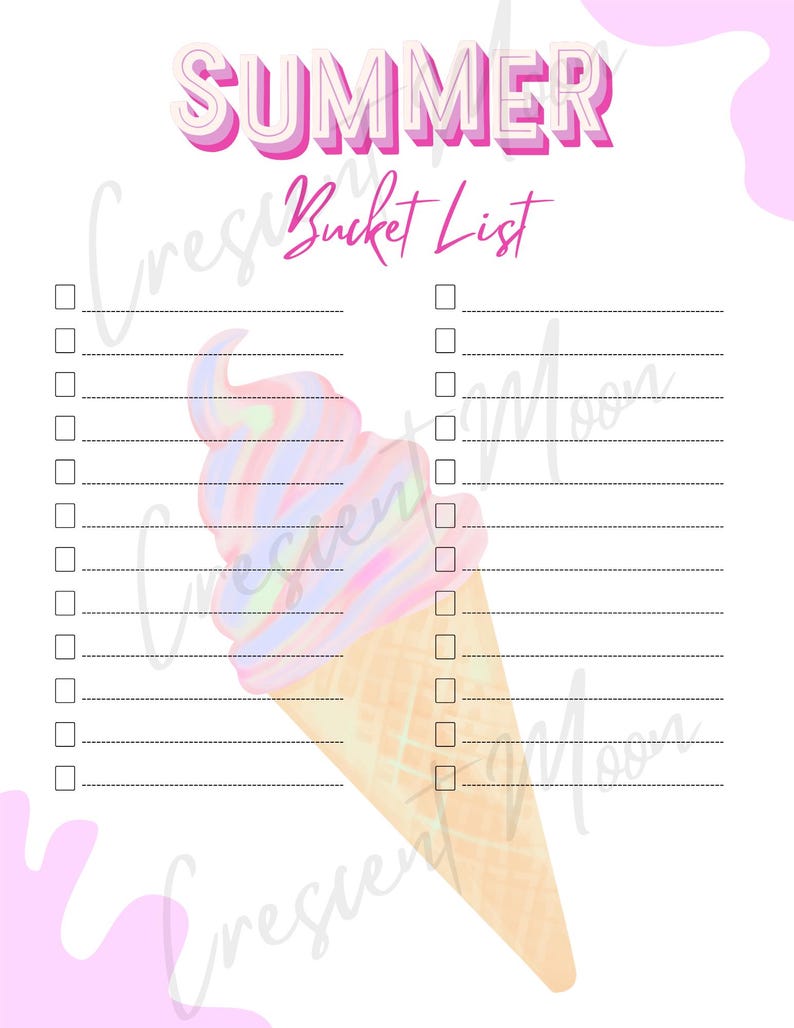 SUMMER
Bucket List
Crescent Moon
Crescent Moon
Crescent Moon